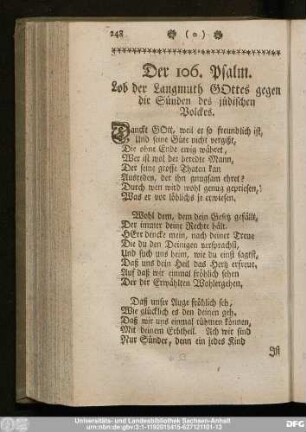 248 ❀ ( o ) ❀
Der 106. Psalm.
Lob der Langmuth GOttes gegen
die Sünden des jüdischen
Volckes.
Danckt GOtt, weil er so freundlich ist,
Und seine Güte nicht vergißt,
Die ohne Ende ewig währet,
Wer ist wol der beredte Mann,
Der seine grosse Thaten kan
Ausreden, der ihn gnugsam ehret?
Durch wen wird wohl genug gepriesen,
Was er vor löblichs je erwiesen.
Wohl dem, dem dein Gesetz gefällt,
Der immer deine Rechte hält.
HErr dencke mein, nach deiner Treu
Die du den Deinigen versprachst,
Und such uns heim, wie du einst sagst,
Daß uns dein Heil das Herz erfreue,
Auf daß wir einmal frölich sehen
Der dir Erwählten Wohlergehen.
Daß unser Auge frölich seh,
Wie glücklich es den deinen geh,
Daß wir uns einmal rühmen können,
Mit deinem Erbtheil. Ach wir sind
Nur Sünder, denn ein jedes Kind
Ist
Universitäts- und Landesbibliothek Sachsen-Anhalt
urn:nbn:de:gbv:3:1-1192015415-627121101-13
DFG